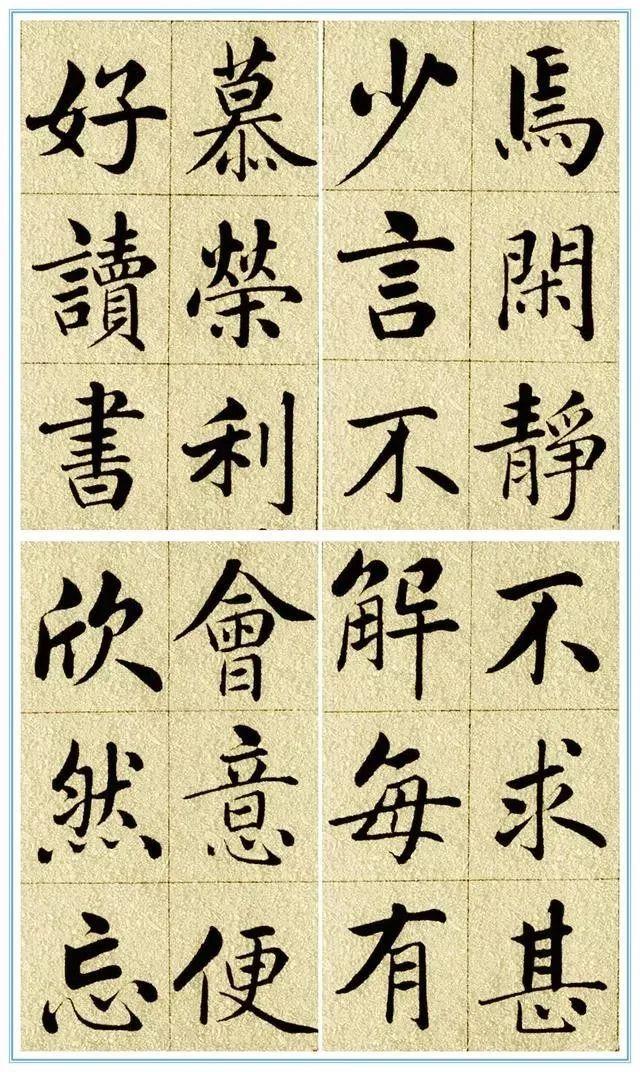 焉閑靜
少言不
慕榮利
好讀書
不求甚
解每有
會意便
欣然忘